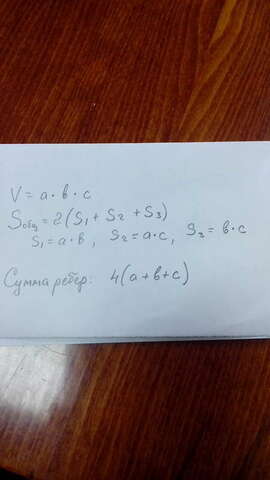 V = a · b · c
Sобщ = 2(S1 + S2 + S3)
S1 = a · b, S2 = a · c, S2 = b · c
Сумма ребер: 4(a + b + c)